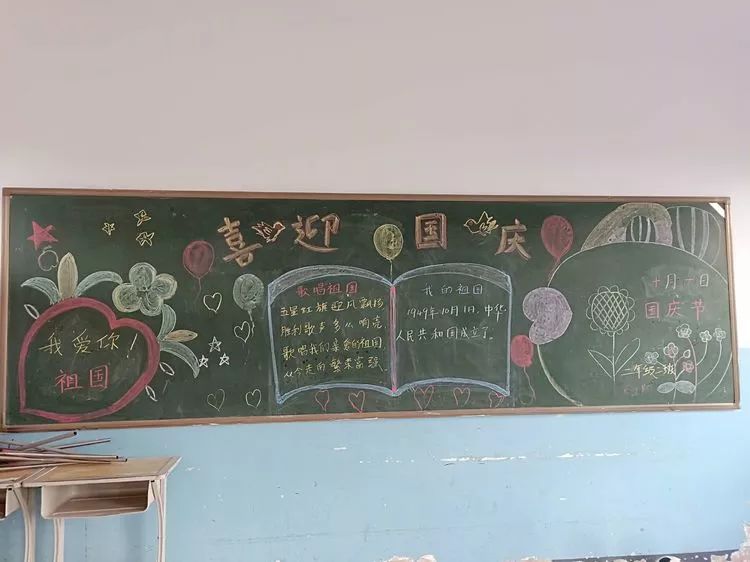 喜迎国庆
我爱你！
祖国
歌唱祖国
五星红旗迎风飘扬
胜利歌声多么响亮
歌唱我们亲爱的祖国
从今走向繁荣富强
我的祖国
1949年10月1日，中华
人民共和国成立了。
十月一日
国庆节
二年级二班